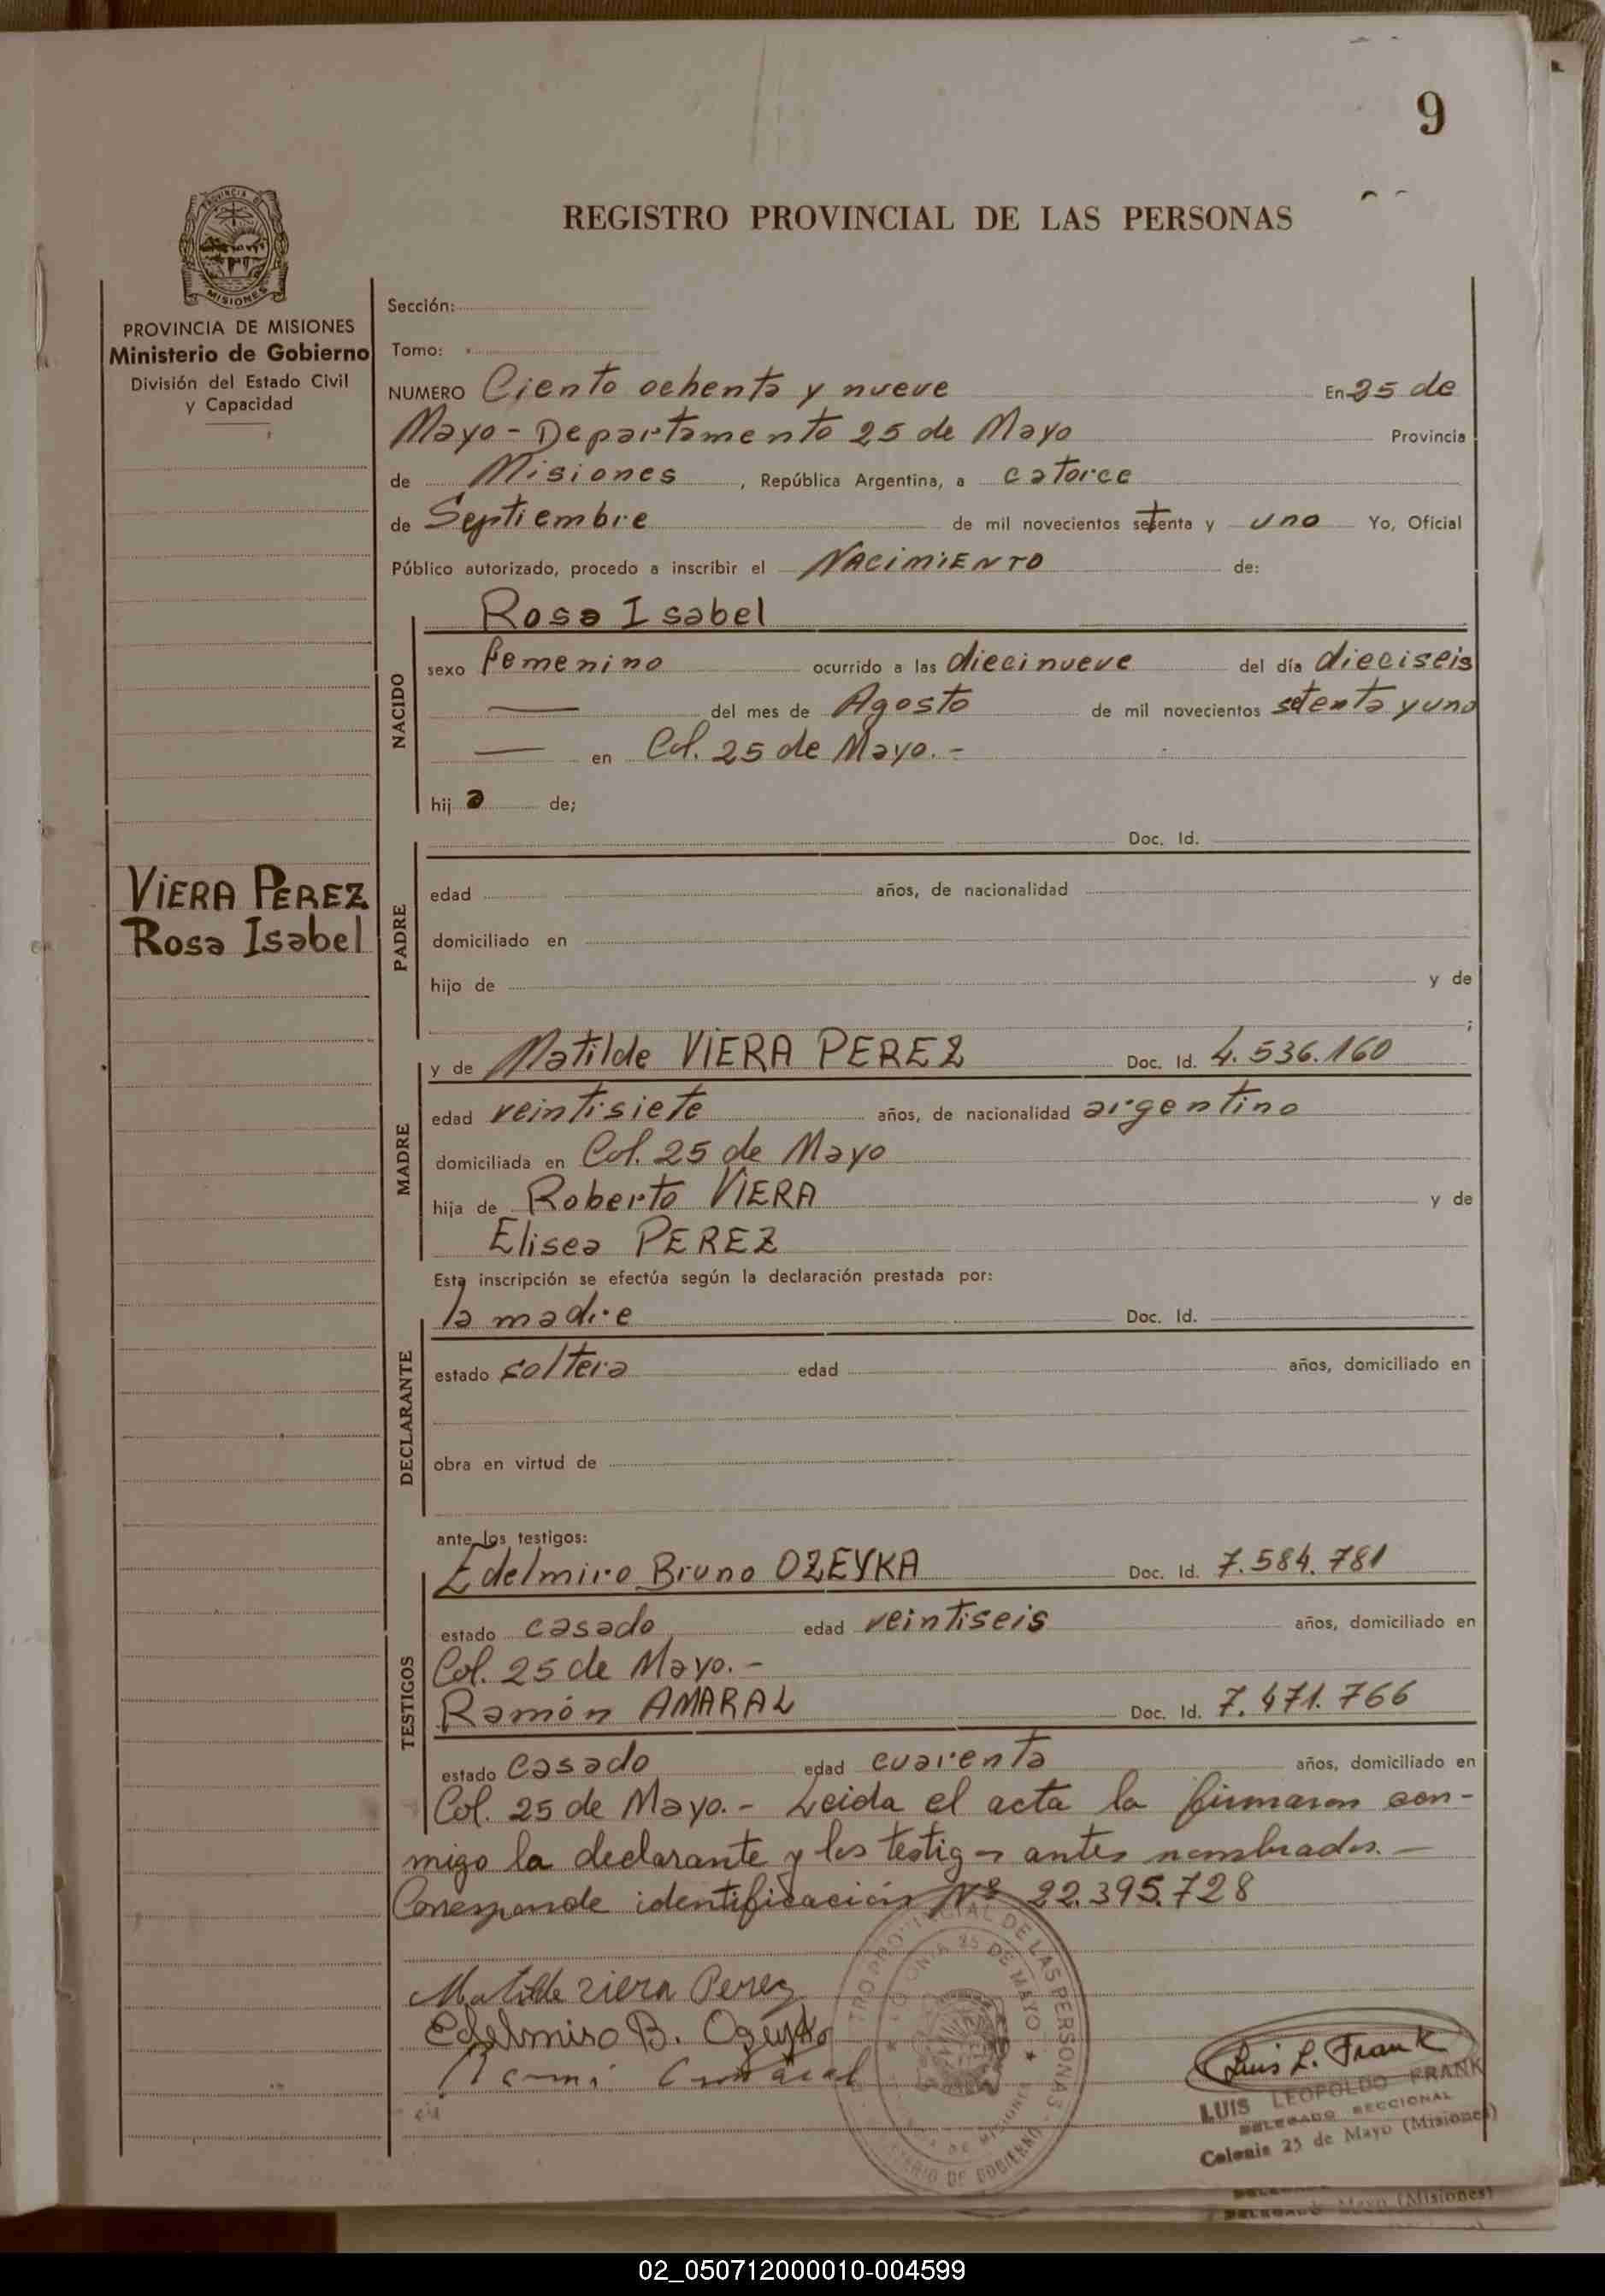 9
REGISTRO PROVINCIAL DE LAS PERSONAS
PROVINCIA DE MISIONES
Ministerio de Gobierno
División del Estado Civil
y Capacidad
VIERA PEREZ
Rosa Isabel
Sección:
Tomo:
NUMERO Ciento ochenta y nueve En 25 de
Mayo - Departamento 25 de Mayo Provincia
de Misiones, República Argentina, a catorce
de Septiembre de mil novecientos setenta y uno Yo, Oficial
Público autorizado, procedo a inscribir el NACIMIENTO de:
NACIDO
Rosa Isabel
sexo femenino ocurrido a las diecinueve del día dieciseis
— del mes de Agosto de mil novecientos setenta y uno
— en Col. 25 de Mayo.-
hij a de;
PADRE
Doc. Id.
edad años, de nacionalidad
domiciliado en
hijo de y de
;
MADRE
y de Matilde VIERA PEREZ Doc. Id. 4.536.160
edad veintisiete años, de nacionalidad argentino
domiciliada en Col. 25 de Mayo
hija de Roberto VIERA y de
Elisea PEREZ
Esta inscripción se efectúa según la declaración prestada por:
DECLARANTE
la madre Doc. Id.
estado soltera edad años, domiciliado en
obra en virtud de
ante los testigos:
TESTIGOS
Edelmiro Bruno OZEYKA Doc. Id. 7.584.781
estado casado edad veintiseis años, domiciliado en
Col. 25 de Mayo.-
Ramón AMARAL Doc. Id. 7.471.766
estado casado edad cuarenta años, domiciliado en
Col. 25 de Mayo.- Leida el acta la firmaron con-
migo la declarante y los testigos antes nombrados.—
Corresponde identificación Nº 22.395.728
Matilde viera Perez
Edelmiro B. Ozeyka
Luis L. Frank
LUIS LEOPOLDO FRANK
DELEGADO SECCIONAL
Colonia 25 de Mayo (Misiones)
02_050712000010-004599